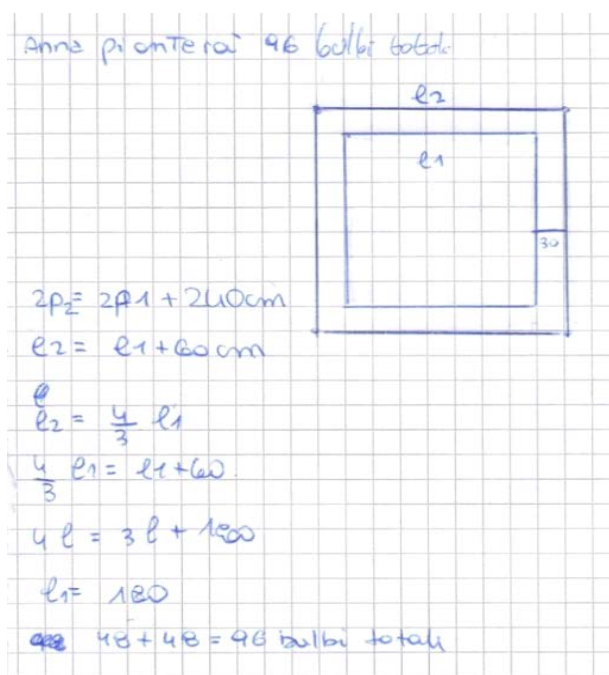 Anna pianterà 96 bulbi totali
l2
l1
30
2p2= 2p1 + 240cm
l2 = l1+60cm
l2 = 4/3 l1
4/3 l1 = l1+60.
4 l = 3 l + 180
l1= 180
48 + 48 = 96 bulbi totali